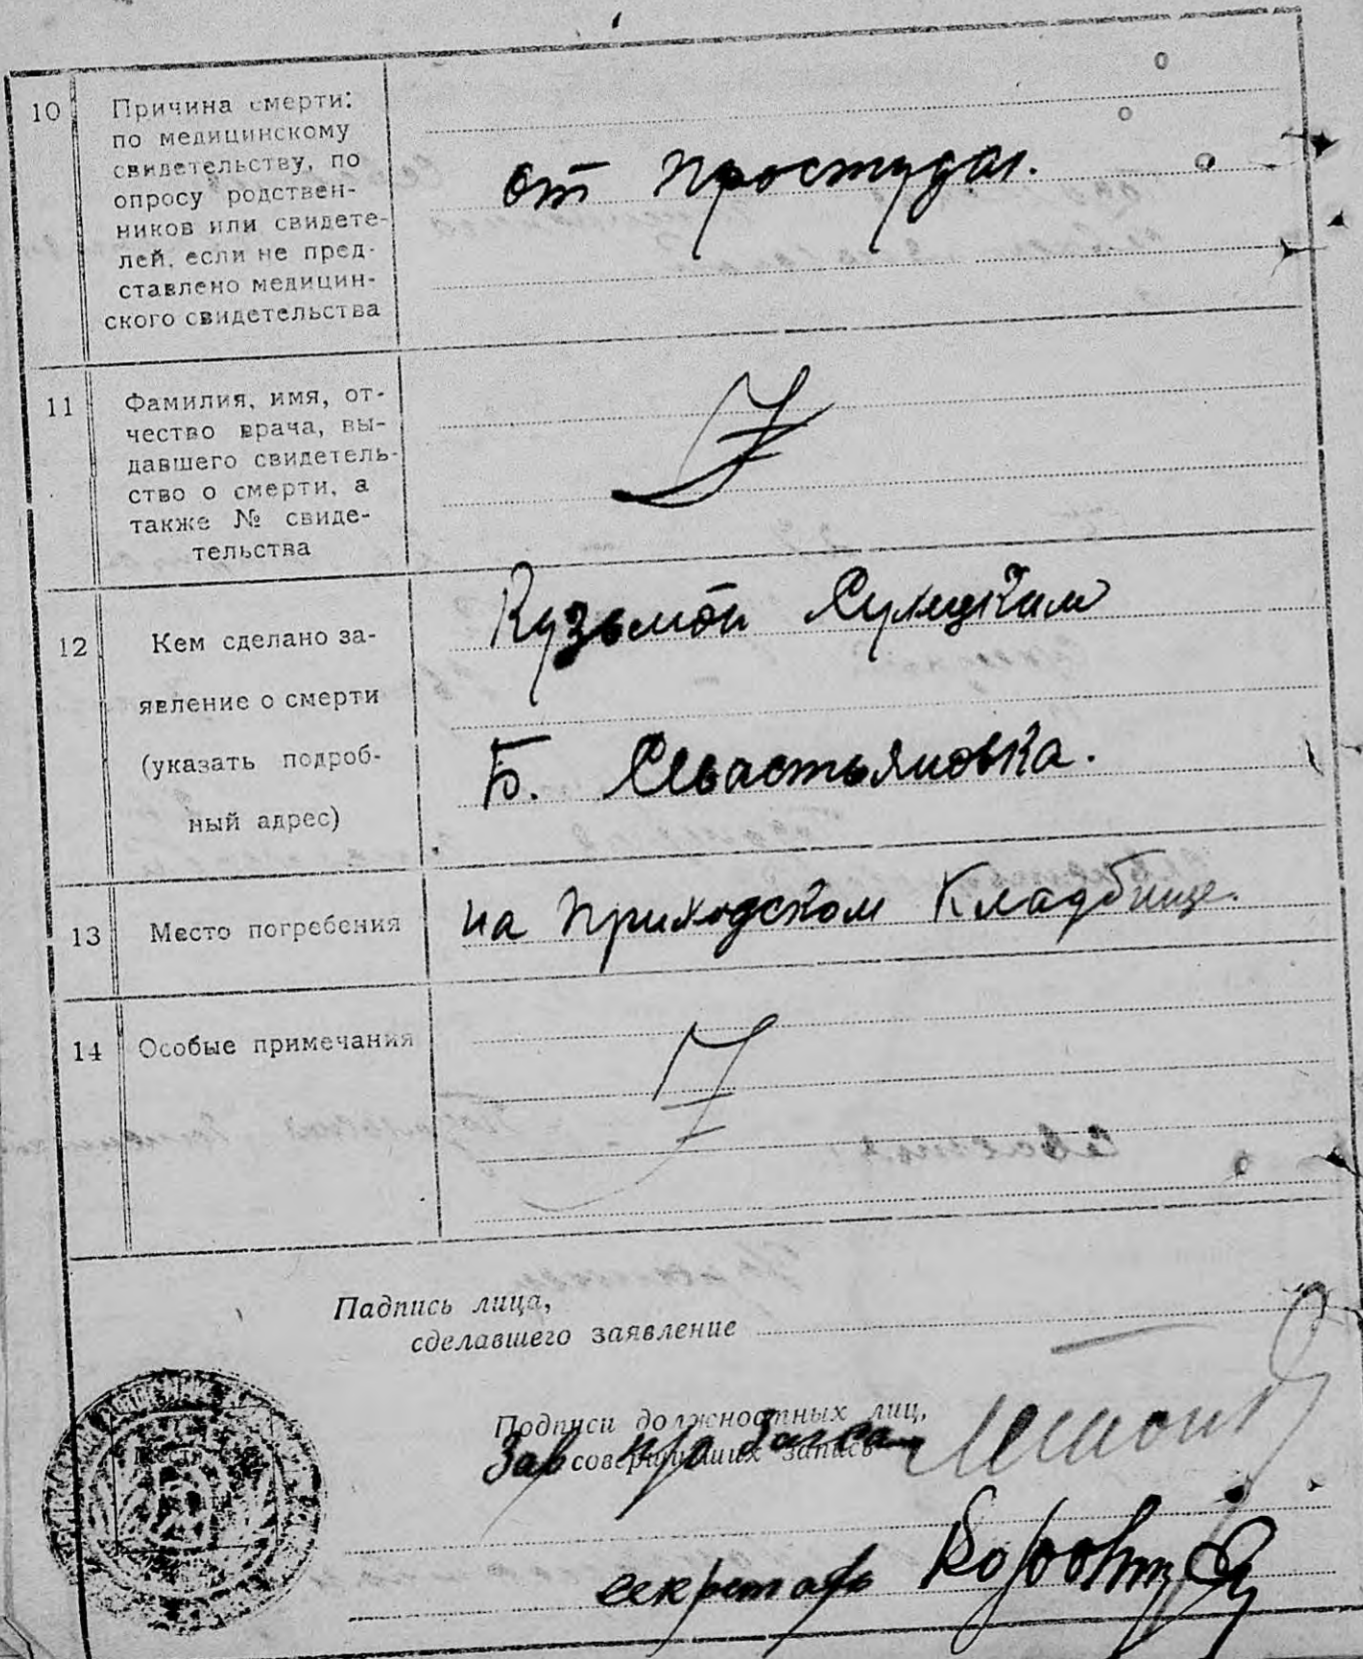 10
Причина смерти:
по медицинскому
свидетельству, по
опросу родствен-
ников или свидете-
лей, если не пред-
ставлено медицин-
ского свидетельства
от простуды.
11
Фамилия, имя, от-
чество врача, вы-
давшего свидетель-
ство о смерти, а
также № свиде-
тельства
12
Кем сделано за-
явление о смерти
(указать подроб-
ный адрес)
Кузьмой
Б. Севастьяновка.
13
Место погребения
на приходском кладбище.
14
Особые примечания
Падпись лица,
сделавшего заявление
Подписи должностных лиц,
совершивших запись
Зав
секретарь